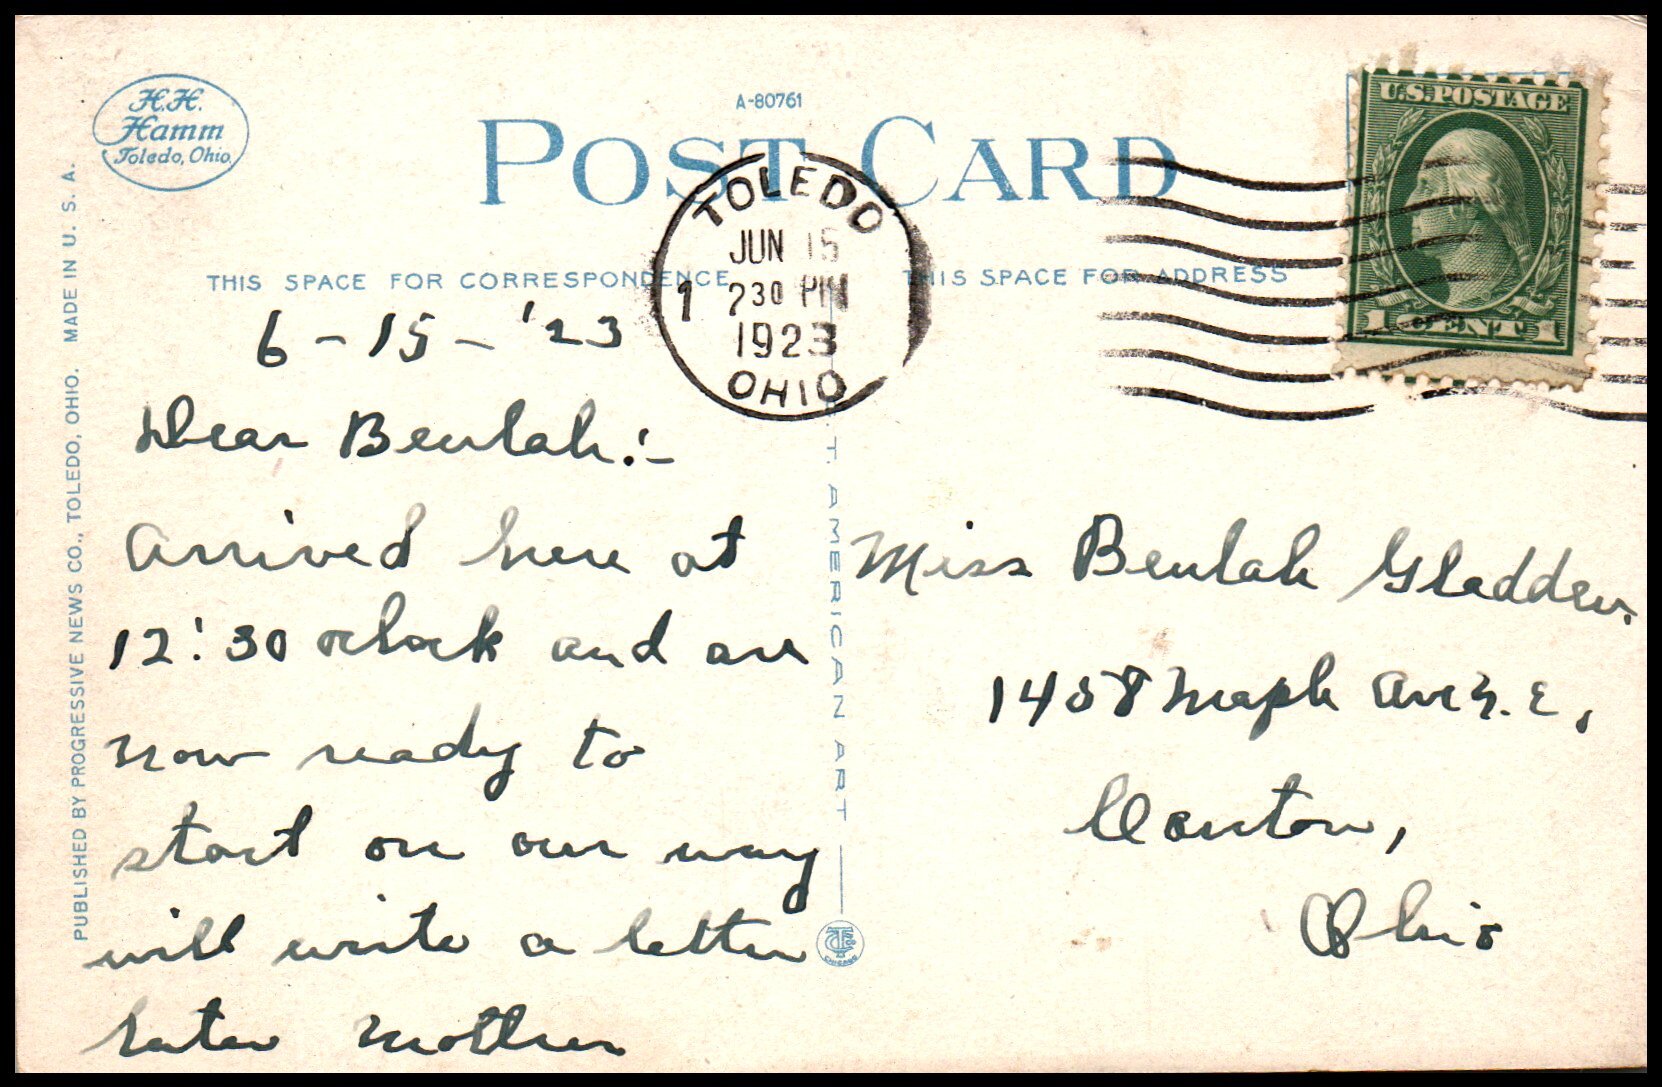 H.H.
Hamm
Toledo, Ohio.
A-80761
POST CARD
TOLEDO
JUN 15
1 230 PM
1923
OHIO
U.S. POSTAGE
1 CENT 1
THIS SPACE FOR CORRESPONDENCE
THIS SPACE FOR ADDRESS
PUBLISHED BY PROGRESSIVE NEWS CO., TOLEDO, OHIO. MADE IN U. S. A.
6-15-'23
Dear Beulah:-
Arrived here at
12:30 oclock and are
now ready to
start on our way
will write a letter
later Mother
C.T. AMERICAN ART
CHICAGO
Miss Beulah Gladden.
1458 Maple Ave N.E,
Canton,
Ohio